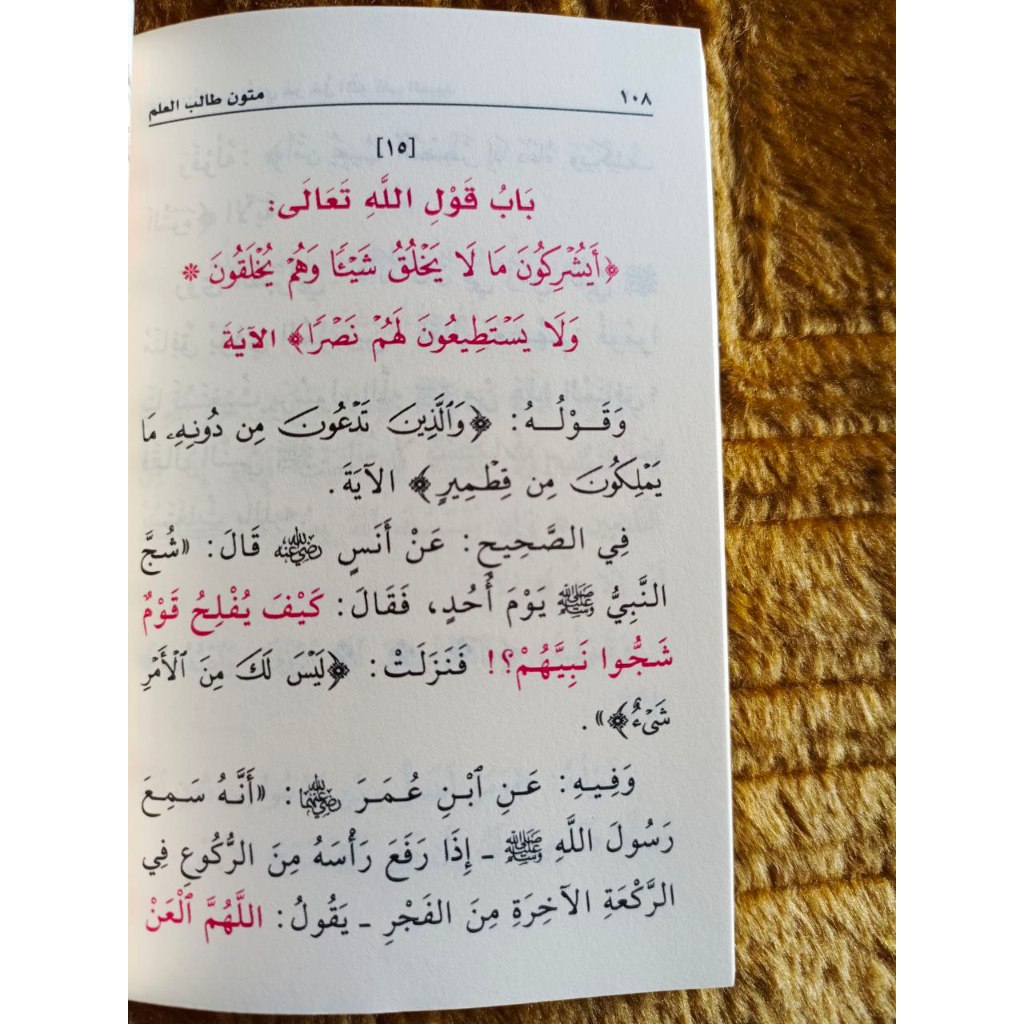 متون طالب العلم ١٠٨
[١٥]
بَابُ قَوْلِ اللَّهِ تَعَالَى:
﴿أَيُشْرِكُونَ مَا لَا يَخْلُقُ شَيْـًٔا وَهُمْ يُخْلَقُونَ *
وَلَا يَسْتَطِيعُونَ لَهُمْ نَصْرًا﴾ الآيَةَ
وَقَوْلُهُ: ﴿وَٱلَّذِينَ تَدْعُونَ مِن دُونِهِۦ مَا
يَمْلِكُونَ مِن قِطْمِيرٍ﴾ الآيَةَ.
فِي الصَّحِيحِ: عَنْ أَنَسٍ رضي الله عنه قَالَ: «شُجَّ
النَّبِيُّ ﷺ يَوْمَ أُحُدٍ، فَقَالَ: كَيْفَ يُفْلِحُ قَوْمٌ
شَجُّوا نَبِيَّهُمْ؟! فَنَزَلَتْ: ﴿لَيْسَ لَكَ مِنَ ٱلْأَمْرِ
شَىْءٌ﴾».
وَفِيهِ: عَنِ ٱبْنِ عُمَرَ رضي الله عنهما: «أَنَّهُ سَمِعَ
رَسُولَ اللَّهِ ﷺ ـ إِذَا رَفَعَ رَأْسَهُ مِنَ الرُّكُوعِ فِي
الرَّكْعَةِ الآخِرَةِ مِنَ الفَجْرِ ـ يَقُولُ: اللَّهُمَّ ٱلْعَنْ